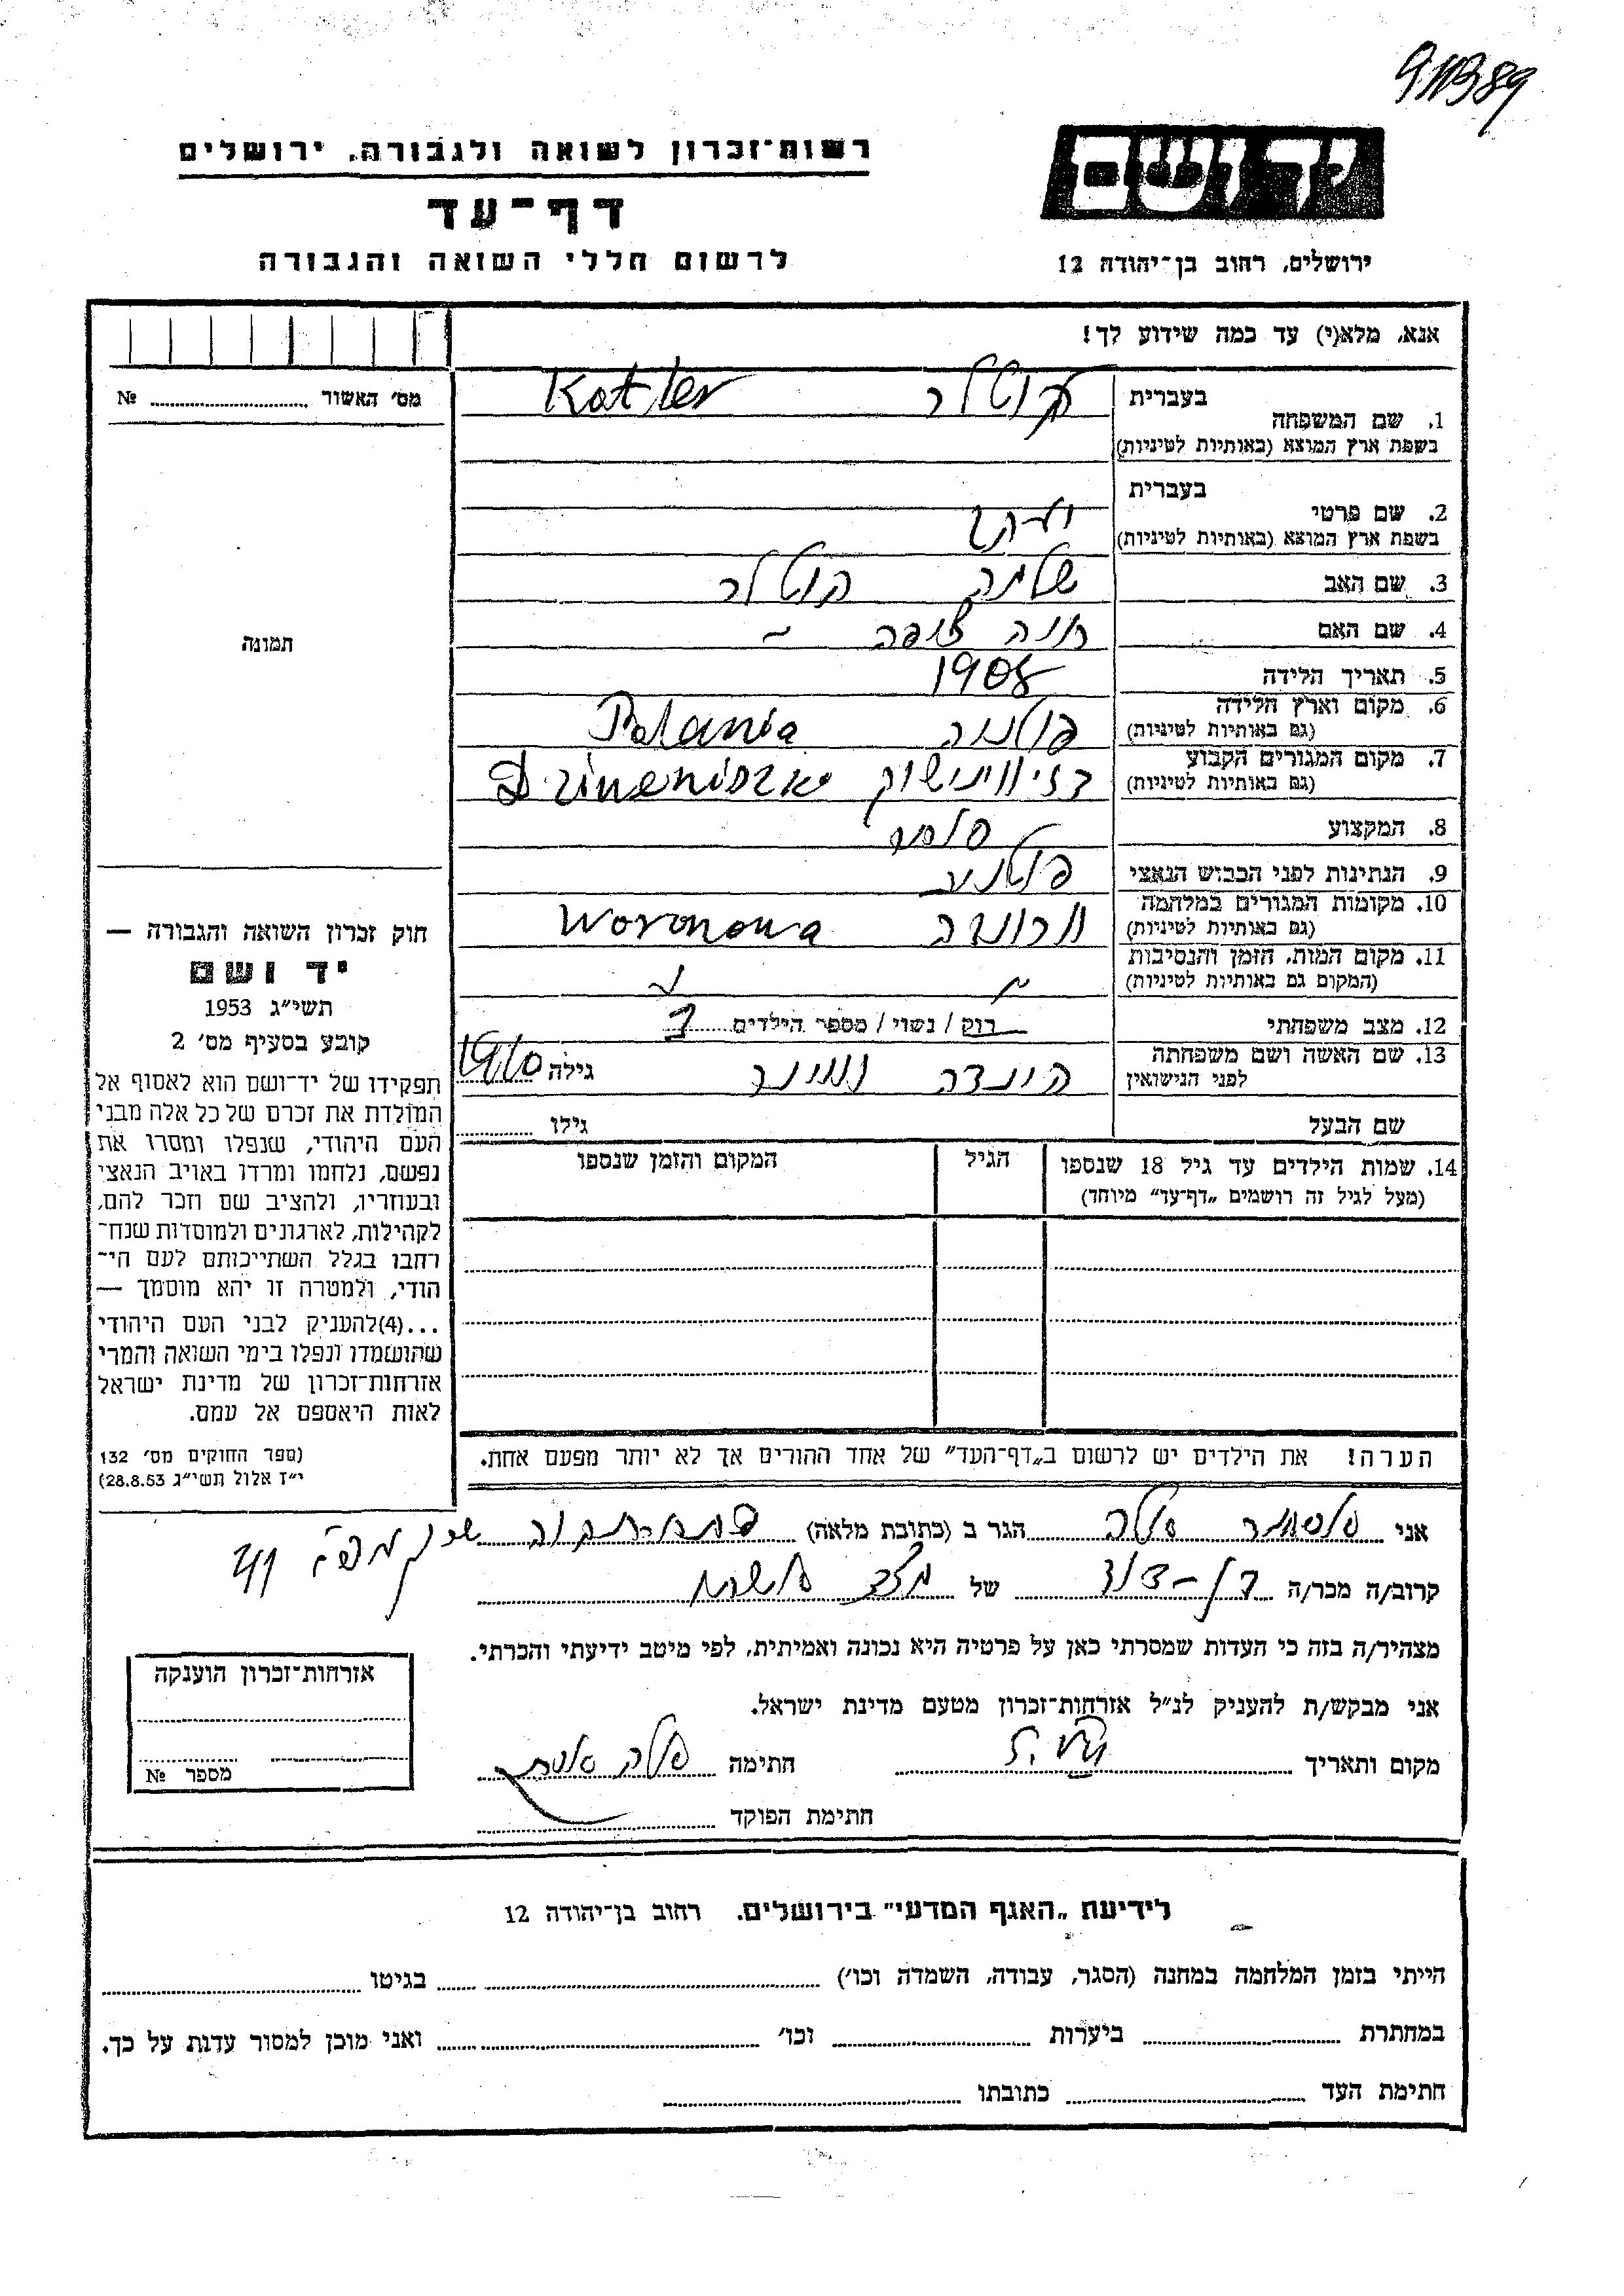 911389
רשות־זכרון לשואה ולגבורה, ירושלים
דף־עד
לרשום חללי השואה והגבורה
יד ושם
ירושלים, רחוב בן־יהודה 12
אנא, מלא(י) עד כמה שידוע לך!
מס׳ האשור № 
1. שם המשפחה בעברית קוטלר Kotler
בשפת ארץ המוצא (באותיות לטיניות)
2. שם פרטי בעברית
בשפת ארץ המוצא (באותיות לטיניות)
3. שם האב שלמה קוטלר
4. שם האם חנה ציפה ~
תמונה
5. תאריך הלידה 1908
6. מקום וארץ הלידה פולניה Polania
(גם באותיות לטיניות)
7. מקום המגורים הקבוע
(גם באותיות לטיניות)
8. המקצוע
9. הנתינות לפני הכבוש הנאצי
10. מקומות המגורים במלחמה Woronowa
(גם באותיות לטיניות)
11. מקום המות, הזמן והנסיבות
(המקום גם באותיות לטיניות)
12. מצב משפחתי רוק / נשוי / מספר הילדים
13. שם האשה ושם משפחתה הינדה גילה 1910
לפני הנישואין
שם הבעל גילו
14. שמות הילדים עד גיל 18 שנספו הגיל המקום והזמן שנספו
(מעל לגיל זה רושמים „דף־עד״ מיוחד)
הערה! את הילדים יש לרשום ב„דף־העד״ של אחד ההורים אך לא יותר מפעם אחת.
חוק זכרון השואה והגבורה —
יד ושם
תשי״ג 1953
קובע בסעיף מס׳ 2
תפקידו של יד־ושם הוא לאסוף אל
המולדת את זכרם של כל אלה מבני
העם היהודי, שנפלו ומסרו את
נפשם, נלחמו ומרדו באויב הנאצי
ובעוזריו, ולהציב שם וזכר להם,
לקהילות, לארגונים ולמוסדות שנח־
רחבו בגלל השתייכותם לעם הי־
הודי, ולמטרה זו יהא מוסמך —
...(4)להעניק לבני העם היהודי
שהושמדו ונפלו בימי השואה והמרי
אזרחות־זכרון של מדינת ישראל
לאות היאספם אל עמם.
(ספר החוקים מס׳ 132
י״ז אלול תשי״ג 28.8.53)
אני הגר ב (כתובת מלאה)
קרוב/ה מכר/ה של
מצהיר/ה בזה כי העדות שמסרתי כאן על פרטיה היא נכונה ואמיתית, לפי מיטב ידיעתי והכרתי.
אני מבקש/ת להעניק לנ״ל אזרחות־זכרון מטעם מדינת ישראל.
מקום ותאריך חתימה
חתימת הפוקד
אזרחות־זכרון הוענקה
מספר №
לידיעת „האגף המדעי״ בירושלים, רחוב בן־יהודה 12
הייתי בזמן המלחמה במחנה (הסגר, עבודה, השמדה וכו׳) בגיטו
במחתרת ביערות וכו׳ ואני מוכן למסור עדות על כך.
חתימת העד כתובתו